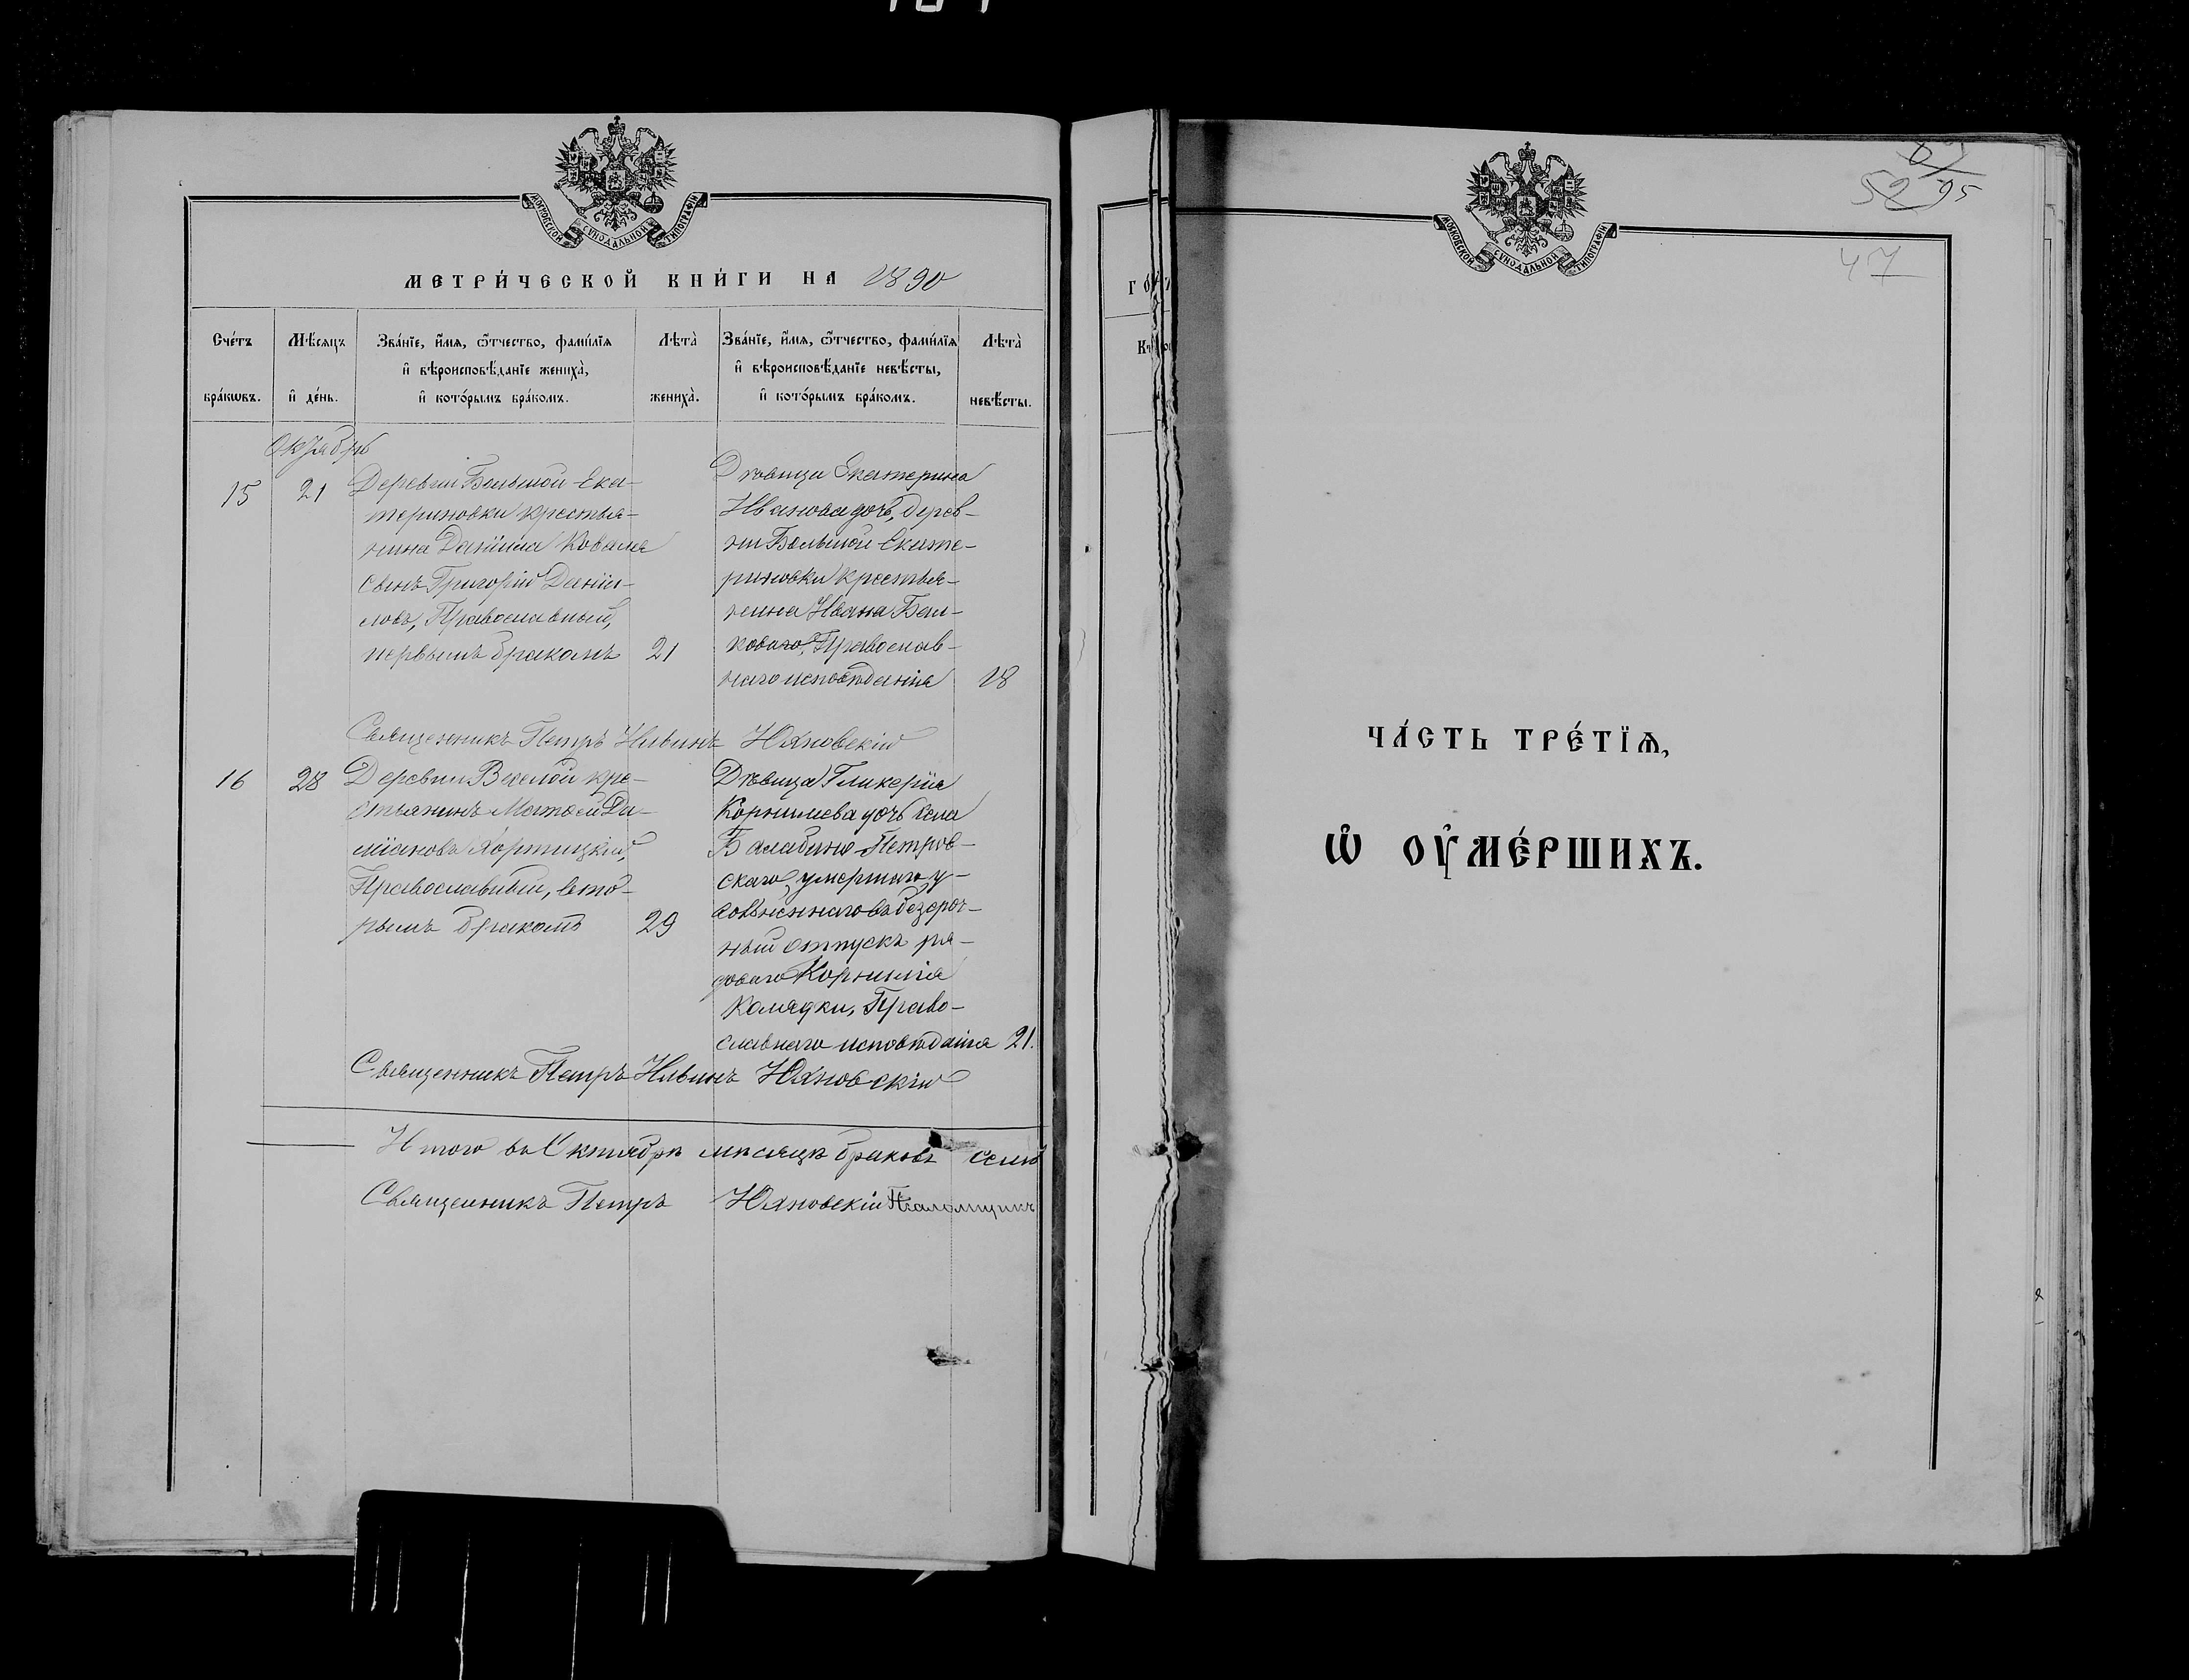 МОСКОВСКОЙ СѴНОДАЛЬНОЙ ТИПОГРАФІИ
МЕТРИ́ЧЕСКОЙ КНИ́ГИ НА 1890
Сче́тъ бра́кѡвъ.
Мѣ́сяцъ и҆ де́нь.
Зва́нїе, и҆́мѧ, ѻ҆́тчество, фами́лїѧ
и҆ вѣроисповѣ́данїе жениха̀,
и҆ кото́рымъ бра́комъ.
Лѣта̀ жениха̀.
Зва́нїе, и҆́мѧ, ѻ҆́тчество, фами́лїѧ
и҆ вѣроисповѣ́данїе невѣ́сты,
и҆ кото́рымъ бра́комъ.
Лѣта̀ невѣ́сты.
Октябрь
15
21
Деревни Большой-Ека-
териновки крестья-
нина Даніила Коваля
сынъ Григорій Даніи-
ловъ, Православный,
первымъ бракомъ
21
Дѣвица Екатерина
Иванова дочь, дерев-
ни Большой-Екате-
риновки крестья-
нина Ивана
Православ-
наго исповѣданія
18
Священникъ Петръ Ильинъ Юяновскій
16
28
Деревни Веселой кре-
стьянинъ Матѳей Да-
міановъ Хортицкій,
Православный, вто-
рымъ бракомъ
29
Дѣвица Гликерія
Корнилиева дочь села
Балабино-Петров-
скаго умершаго у-
вольненнаго въ безсроч-
ный отпускъ ря-
доваго Корнилія
Колядки, Право-
славнаго исповѣданія
21.
Священникъ Петръ Ильинъ Юяновскій
Итого въ Октябрѣ мѣсяцѣ браковъ семь
Священникъ Петръ Юяновскій Псаломщикъ
МОСКОВСКОЙ СѴНОДАЛЬНОЙ ТИПОГРАФІИ
52
95
47
ЧА́СТЬ ТРЕ́ТЇѦ,
Ѡ҆ ОУ҆МЕ́РШИХЪ.